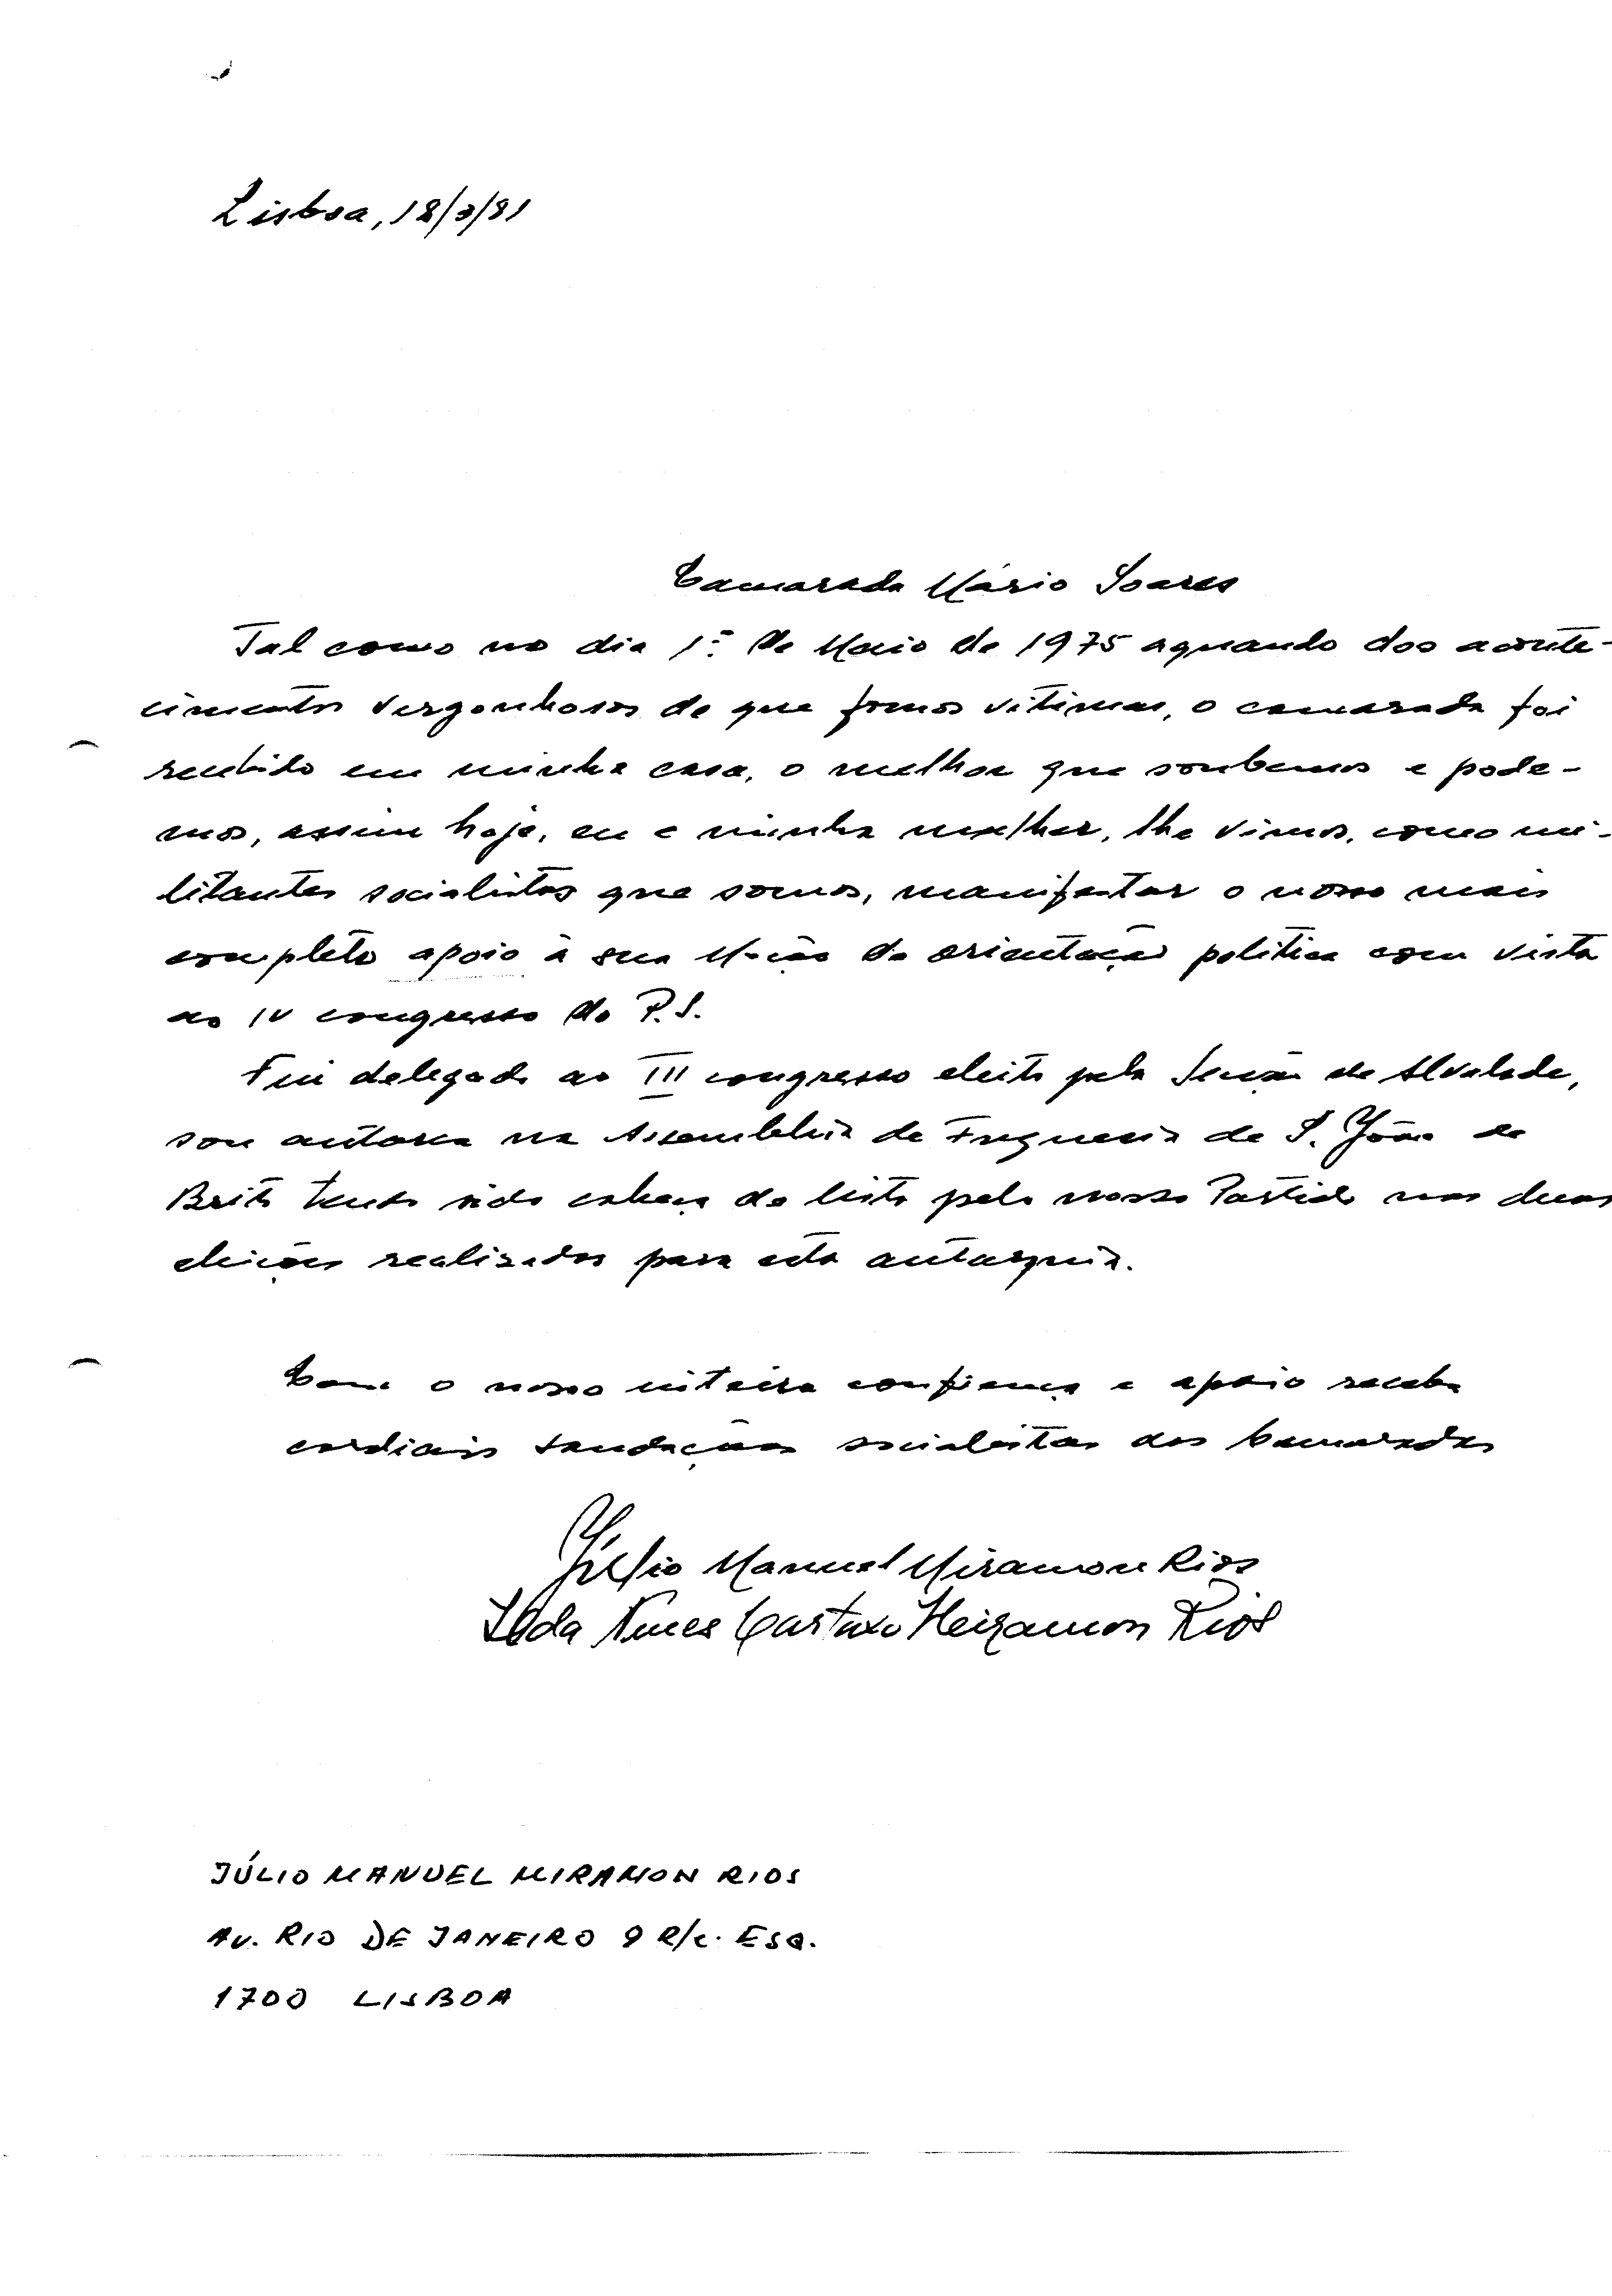 Lisboa, 18/3/81
Camarada Mário Soares
Tal como no dia 1º de Maio de 1975 aquando dos aconte-
cimentos vergonhosos de que fomos vitimas, o camarada foi
recebido em minha casa, o melhor que soubemos e pode-
mos, assim hoje, eu e minha mulher, lhe vimos, como mi-
litantes socialistas que somos, manifestar o nosso mais
completo apoio à sua Moção de orientação politica com vista
ao IV congresso do P.S.
Fui delegado ao III congresso eleito pela Secção de Alvalade,
sou autarca na Assembleia de Freguesia de S. João de
Brito tendo sido cabeça de lista pelo nosso Partido nas duas
eleições realizadas para esta autarquia.
Com o nosso inteira confiança e apoio receba
cordiais saudações socialistas dos camaradas
Júlio Manuel Miramon Rios
Nunes Cartaxo Meiramon Rios
JÚLIO MANUEL MIRAMON RIOS
AV. RIO DE JANEIRO 9 R/c. ESQ.
1700 LISBOA